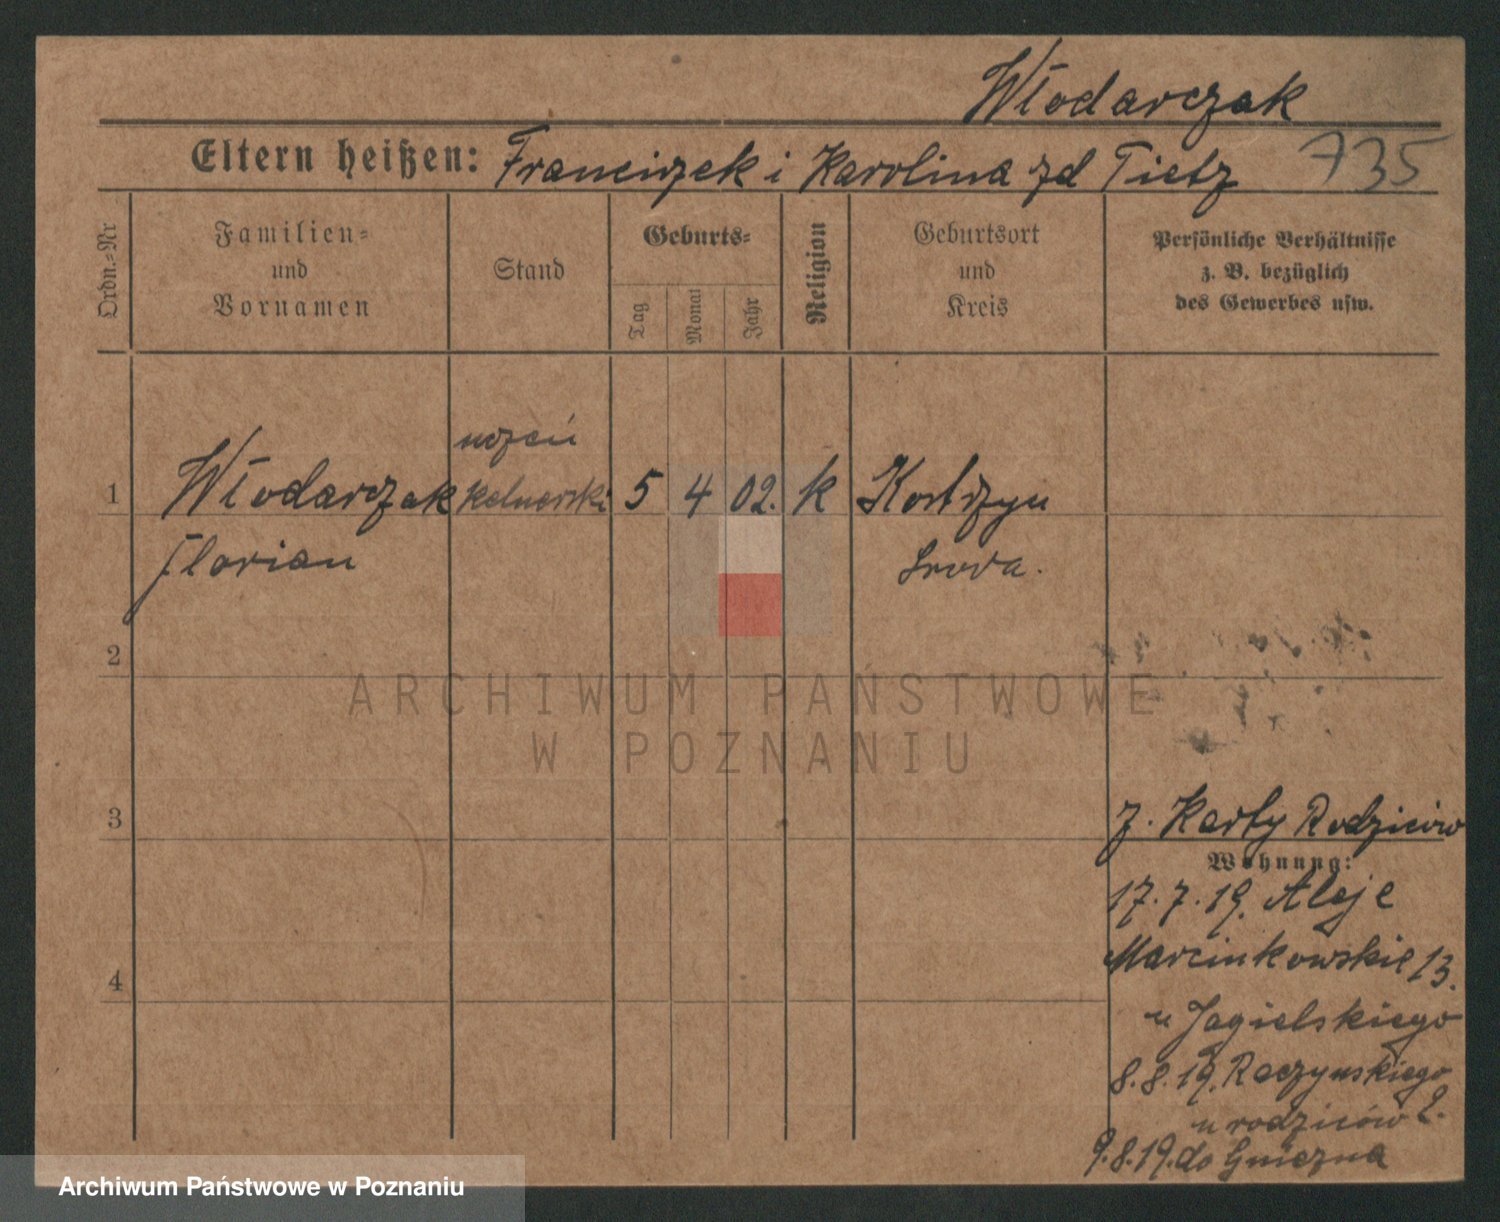 Włodarczak
Eltern heißen: Franciszek i Karolina zd Tietz 735
Ordn.-Nr
Familien-
und
Vornamen
Stand
Geburts-
Tag
Monat
Jahr
Religion
Geburtsort
und
Kreis
Persönliche Verhältnisse
z. B. bezüglich
des Gewerbes usw.
uczeń
1 Włodarczak kelnerski 5 4 02. k Kostrzyn
Florian Sroda.
2
ARCHIWUM PAŃSTWOWE
W POZNANIU
3 z. Karty Rodziców
Wohnung:
17.7.19. Aleje
Marcinkowskie 13.
4
u Jagielskiego
8.8.19. Raczynskiego
u rodziców 2.
9.8.19. do Gniezna
Archiwum Państwowe w Poznaniu